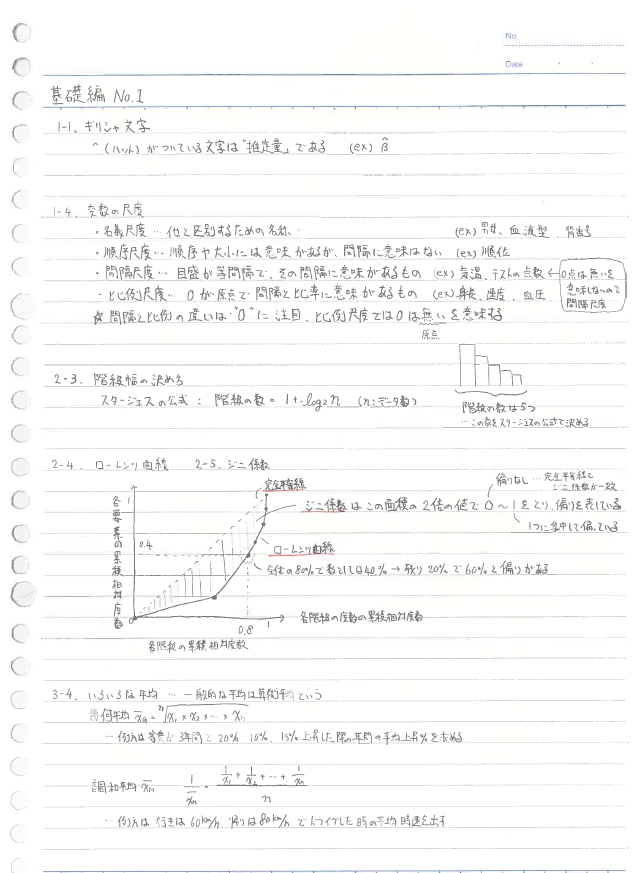 No.
Date
基礎編 No.1
1-1、ギリシャ文字
^(ハット)がついている文字は"推定量"である (ex) β̂
1-4、変数の尺度
・名義尺度… 他と区別するための名前、 (ex) 男女、血液型、背番号
・順序尺度… 順序や大小には意味があるが、間隔に意味はない (ex) 順位
・間隔尺度… 目盛が等間隔で、その間隔に意味があるもの (ex) 気温、テストの点数 ← 0点は無いを
意味しないので
間隔尺度
・比例尺度… 0が原点で間隔と比率に意味があるもの (ex) 身長、速度、血圧
☆ 間隔と比例の違いは"0"に注目、比例尺度では0は無いを意味する
原点
2-3、階級幅の決め方
スタージェスの公式: 階級の数 = 1+log2n (n:データ数)
階級の数は5つ
…この数をスタージェスの公式で決める
2-4、ローレンツ曲線 2-5、ジニ係数
偏りなし…完全平等線と
ジニ係数が一致
完全平等線
ジニ係数はこの面積の2倍の値で0〜1をとり、偏りを表している
1つに集中して偏っている
各要素の累積相対度数
1
0.4
ローレンツ曲線
全体の80%で数としては40% → 残り20%で60%と偏りがある
0
0.8
1
各階級の度数の累積相対度数
各階級の累積相対度数
3-4、いろいろな平均 … 一般的な平均は算術平均という
幾何平均 x̄G = ⁿ√x1 × x2 × … × xn
…例えば 家賃が3年間で20% 10%、15%上昇した際の年間の平均上昇%を求める
調和平均 x̄H 1/x̄H = (1/x1 + 1/x2 + … + 1/xn)/n
…例えば 行きは60km/h 帰りは80km/h でドライブした時の平均時速を出す